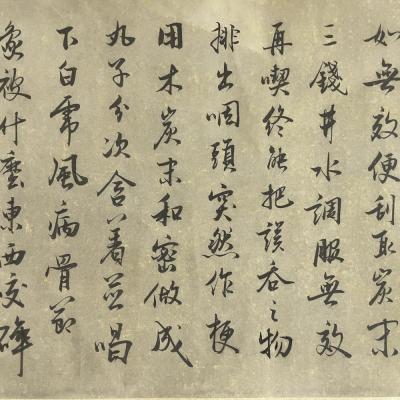 如無效便刮取炭末
三錢井水調服無效
再喫終能把誤吞之物
排出咽頭突然作梗
用木炭末和密做成
丸子分次含著並唱
下白帶風病骨節
象被什麼東西咬碎